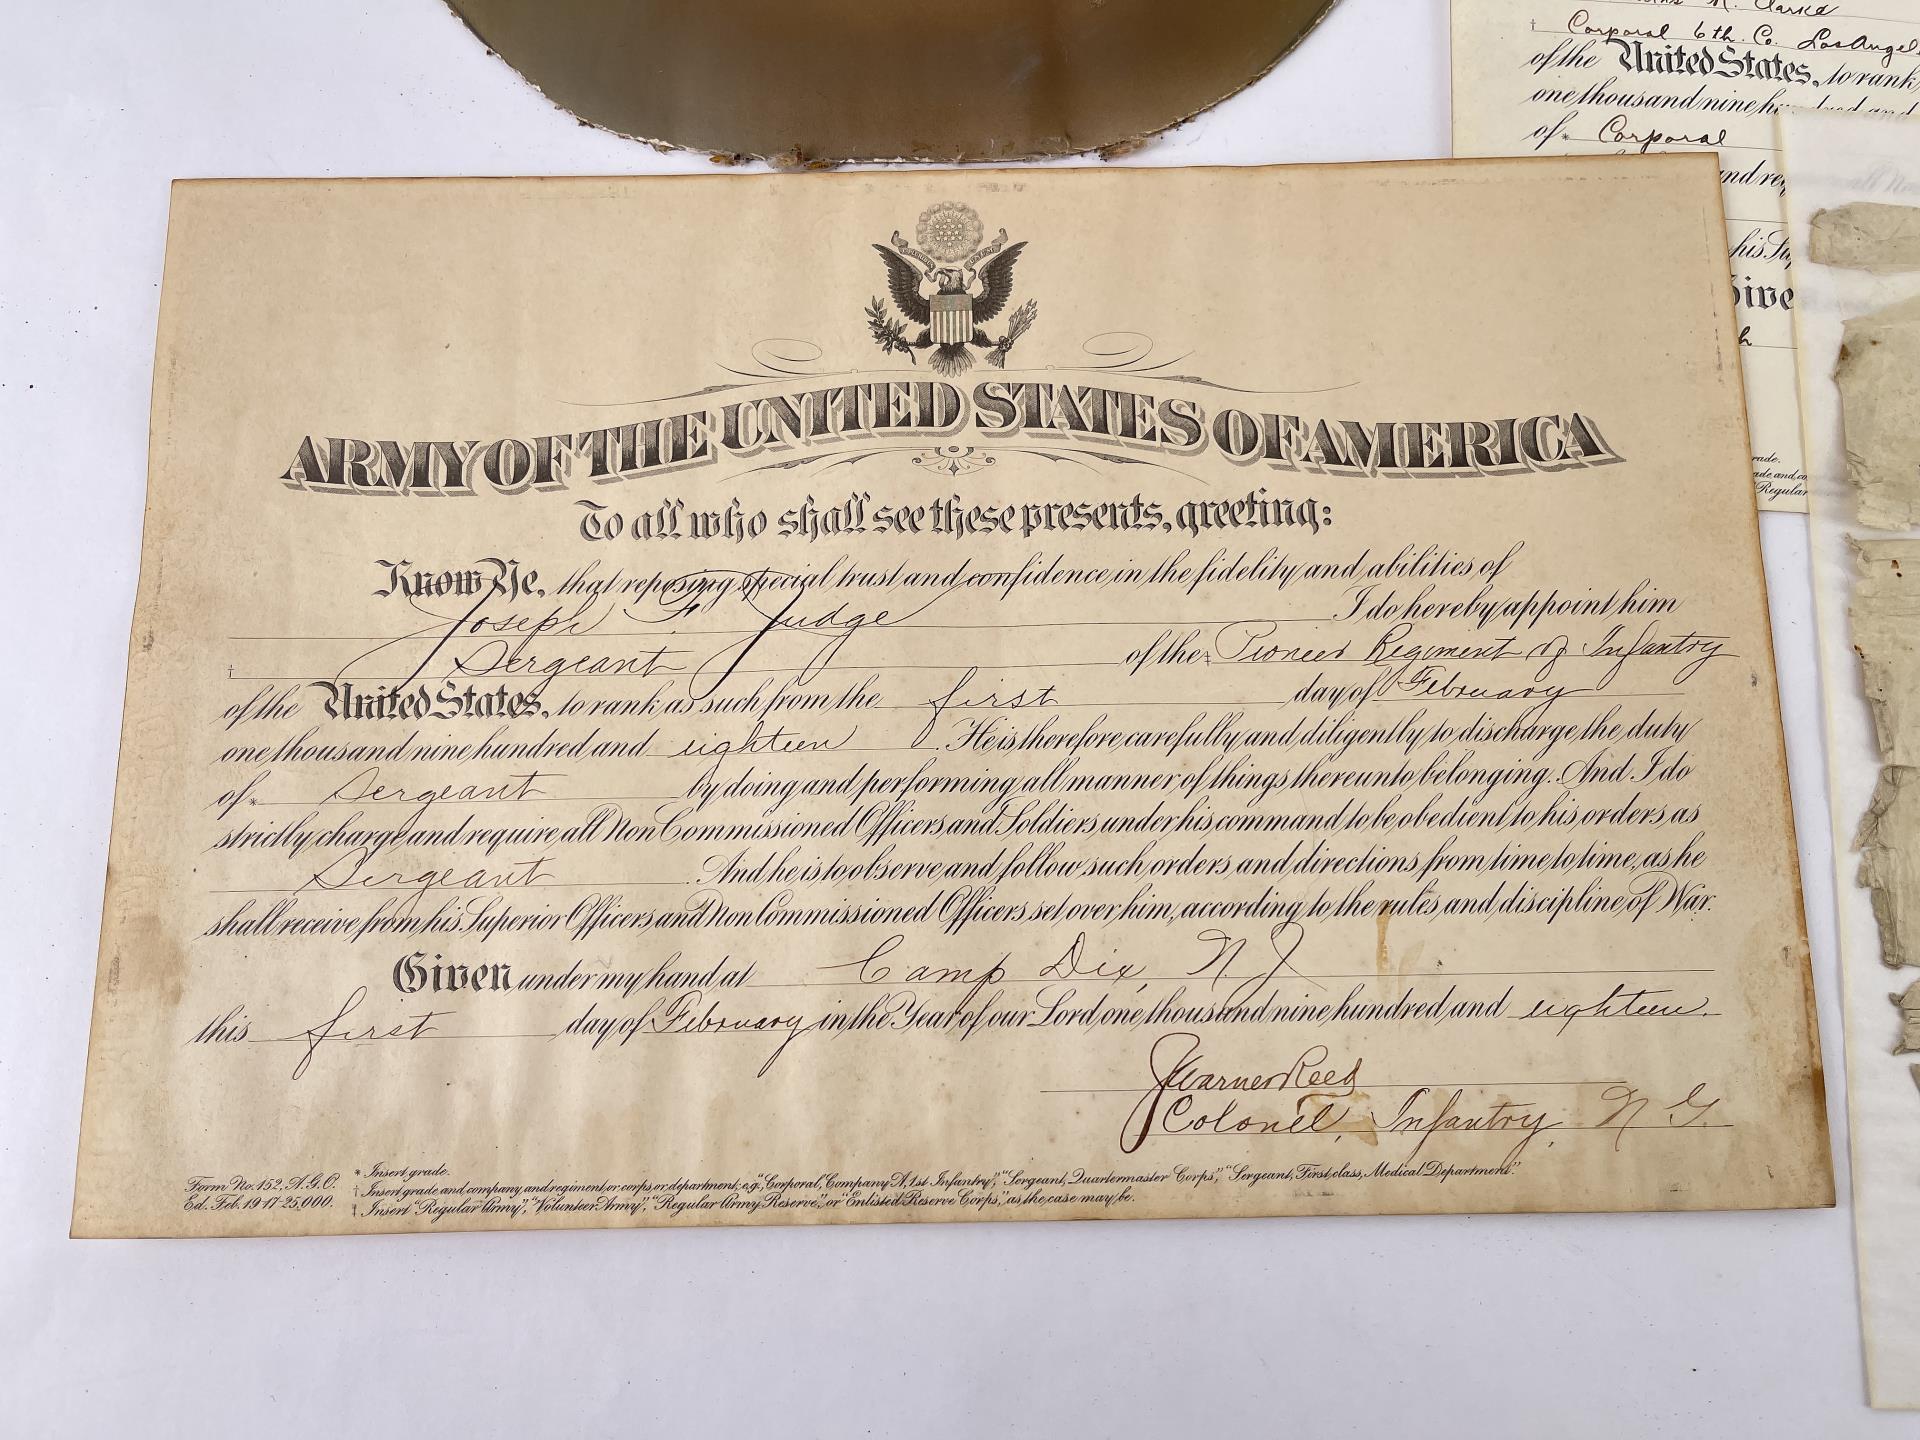 ARMY OF THE UNITED STATES OF AMERICA
To all who shall see these presents, greeting:
Know Ye, that reposing special trust and confidence in the fidelity and abilities of
Joseph F. Judge I do hereby appoint him
† Sergeant of the ‡ Pioneer Regiment of Infantry
of the United States, to rank as such from the first day of February
one thousand nine hundred and eighteen. He is therefore carefully and diligently to discharge the duty
of * Sergeant by doing and performing all manner of things thereunto belonging. And I do
strictly charge and require all Non Commissioned Officers and Soldiers under his command to be obedient to his orders as
Sergeant. And he is to observe and follow such orders and directions from time to time, as he
shall receive from his Superior Officers and Non Commissioned Officers set over him, according to the rules and discipline of War.
Given under my hand at Camp Dix, N J
this first day of February in the Year of our Lord one thousand nine hundred and eighteen.
J Warner Reed
Colonel, Infantry, N G.
Form No. 152, A.G.O.
Ed. Feb. 19-17-25,000.
* Insert grade.
† Insert grade and company and regiment or corps or department, e.g., "Corporal, Company A, 1st Infantry", "Sergeant, Quartermaster Corps", "Sergeant, First class, Medical Department".
‡ Insert "Regular Army", "Volunteer Army", "Regular Army Reserve", or "Enlisted Reserve Corps", as the case may be.
R. Clarke
† Corporal 6th. Co. Los Angel
of the United States, to rank
one thousand nine hundred and
of * Corporal
and re
his Su
Give
h
rade.
ade and co
"Regular